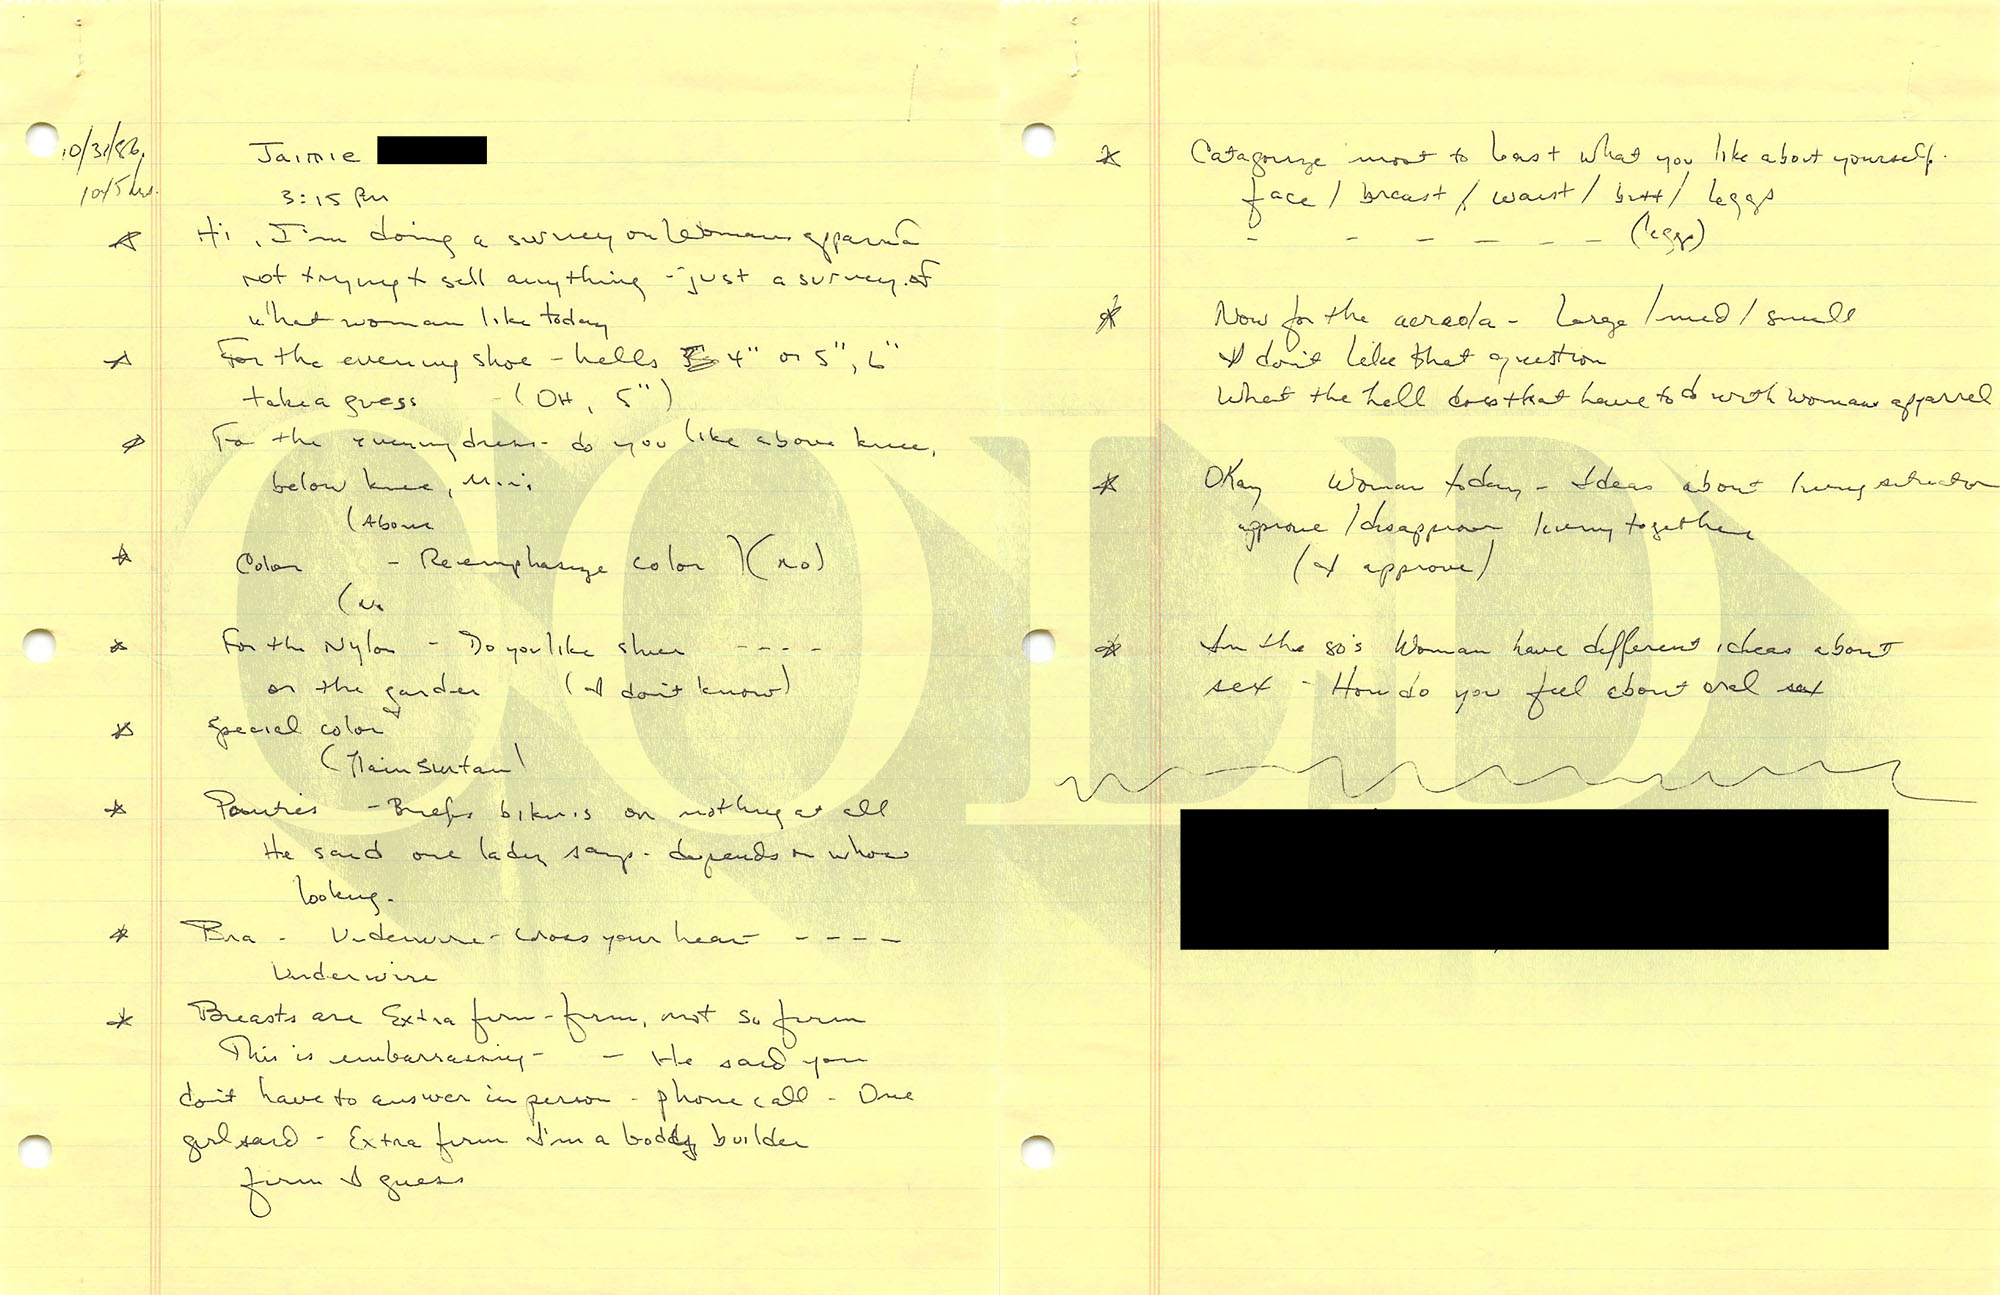 10/31/86,
Jaimie
3:15 Pm
Hi, I'm doing a survey on Womans
not trying t sell anything - just a survey of
what woman like today
For the evening shoe - hells 4" or 5", 6"
take a guess - (OH, 5")
For the evening dress - do you like above knee,
below knee, Mini
(Above
Color - Reemphasize color) (no)
(No
For the Nylon - Do you like sheer - - - -
or the garder (I don't know)
Special color
(Plain Suntan)
Panties - Briefs bikinis or nothing at all
He said one lady says - depends on whos
looking.
Bra - Underwire - cross your heart - - - -
Underwire
Breasts are Extra firm - firm, not so firm
This is embarrassing - - He said you
don't have to answer in person - phone call - One
girl said - Extra firm I'm a body builder
firm I guess
Catagourize most to least what you like about yourself.
face / breast / waist / butt / leggs
- - - - - - (leggs)
Now for the - Large / med / small
I don't like that question
What the hell does that have to do with womans apparrel
Okay Woman today - Ideas about living situation
approve / disapprove living together
(I approve)
In the 80's Woman have different ideas about
sex - How do you feel about oral sex
COLD